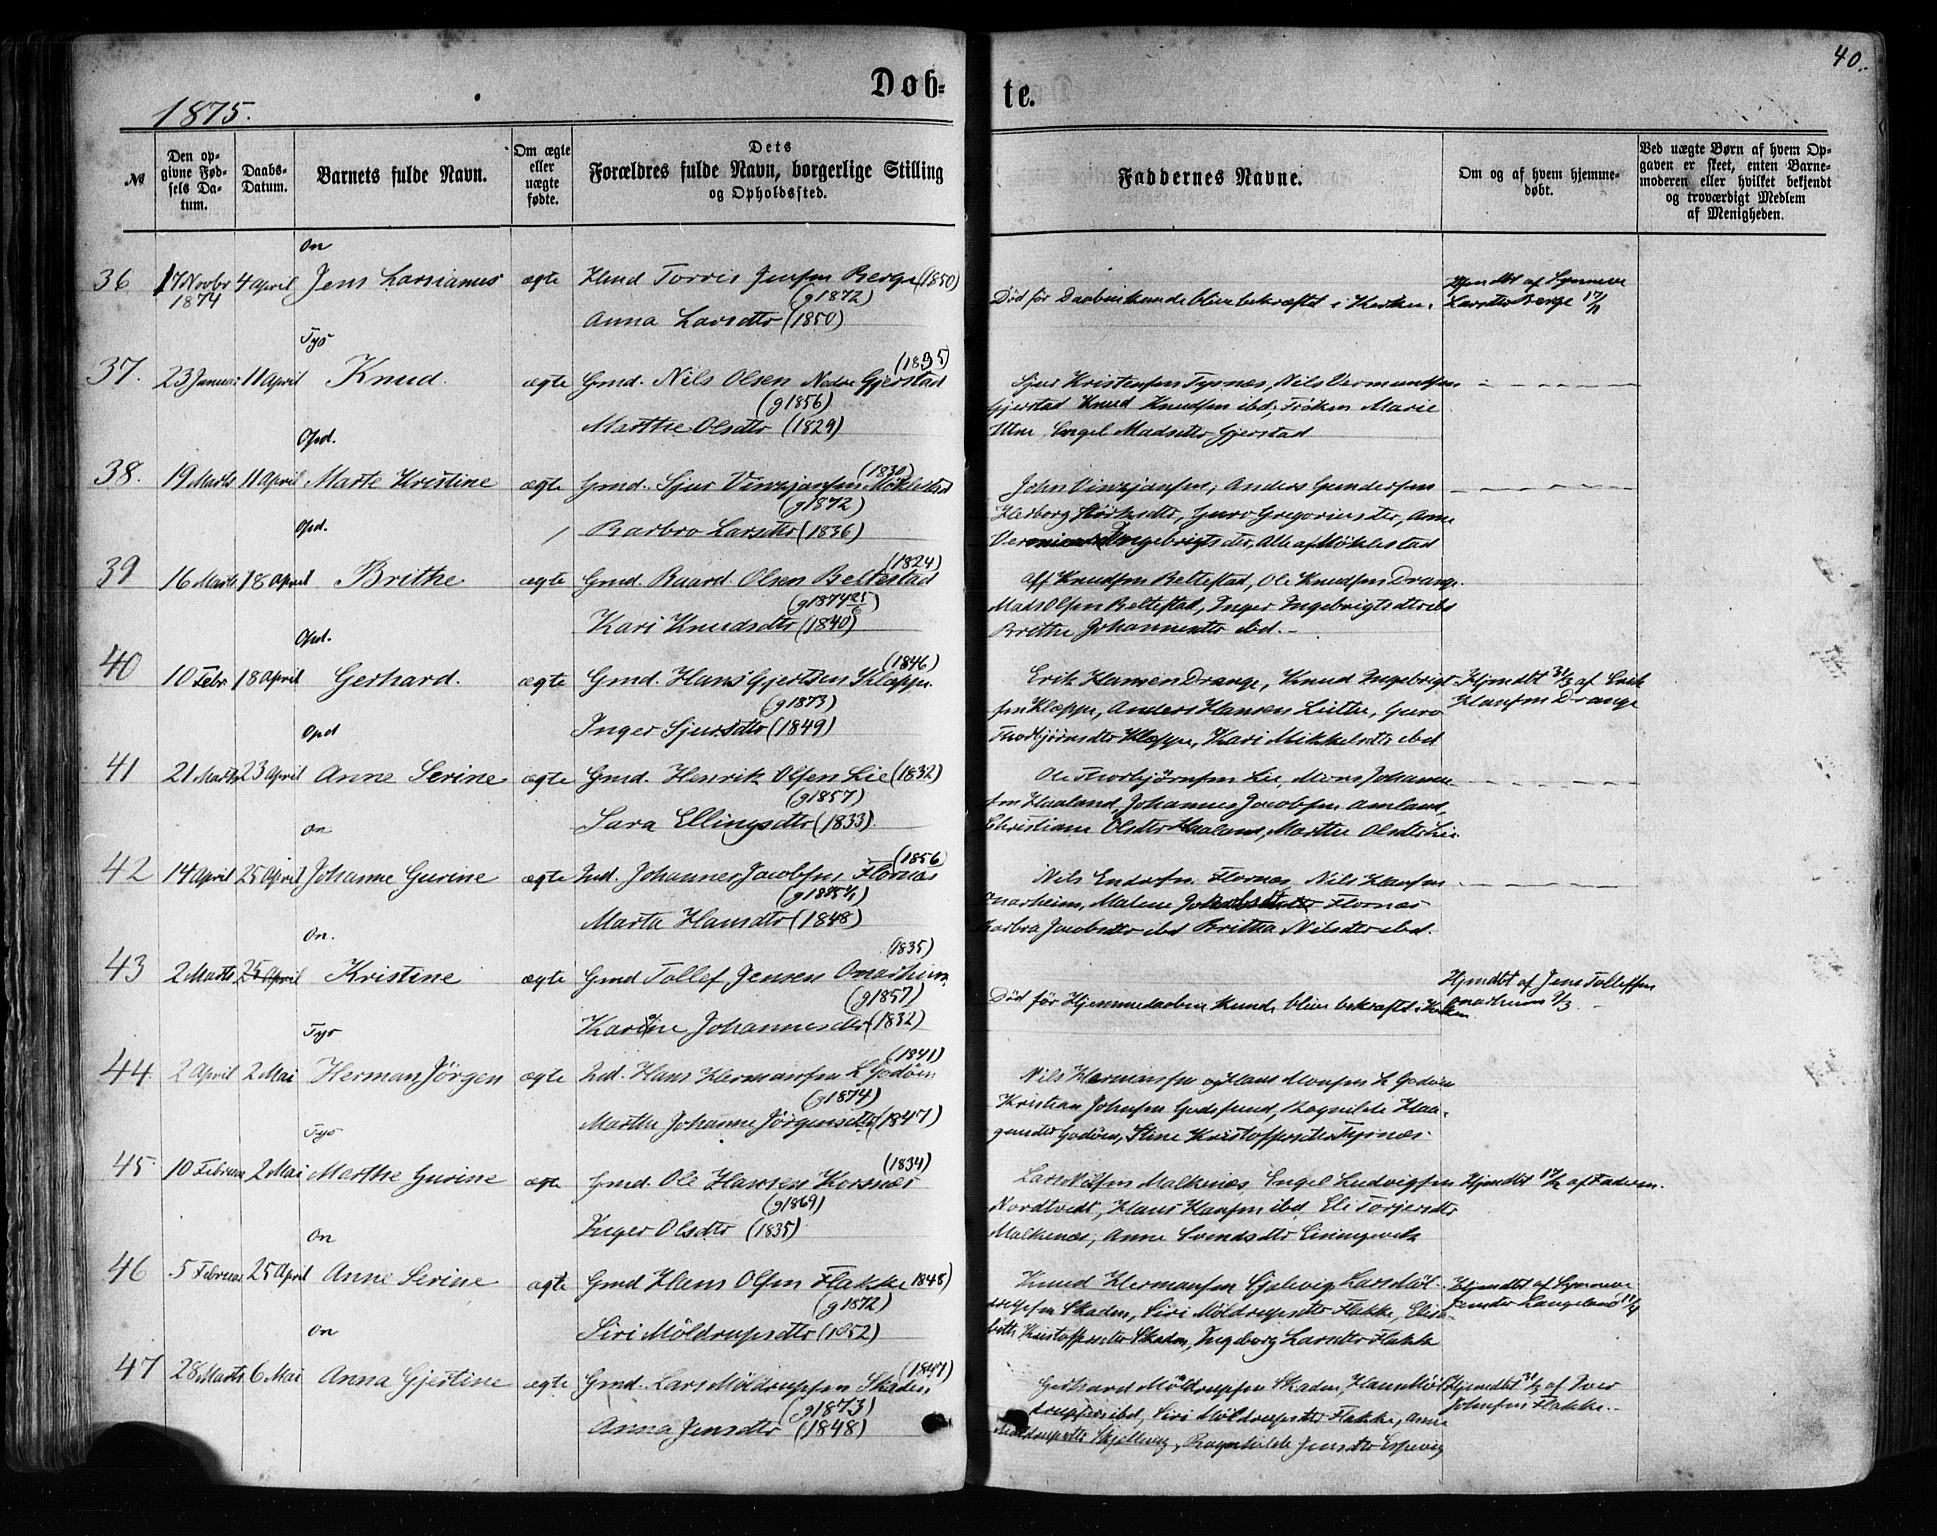 40.
Døb-
te.
1875.
№
Den op-
givne Fød-
sels Da-
tum.
Daabs-
Datum.
Barnets fulde Navn.
Om ægte
eller
uægte
fødte.
Dets
Forældres fulde Navn, borgerlige Stilling
og Opholdssted.
Faddernes Navne.
Om og af hvem hjemme-
døbt.
Ved uægte Børn af hvem Op-
gaven er skeet, enten Barne-
moderen eller hvilket bekjendt
og troværdigt Medlem
af Menigheden.
On
36 17 Novbr 4 April Jens Larsianus ægte Torris Jensen Berge (1850)
1874
(g1872)
Anna Larsdtr (1850)
Død før Daaben kunde blive bekræftet i Kirken.
Hjmdbt af Synneve
Larsdtr Berge 17/11
Tys
37. 23 Januar 11 April Knud. ægte Gmd. Nils Olsen Nedre Gjerstad
(1835)
(g1856)
Marthe Olsdtr (1829)
Sjur Kristensen Tysnes, Nils Vermundsen
Gjerstad Knud Knudsen ibd, Frøken Marie
Engel Madsdtr Gjerstad
Opd.
38. 19 Marts 11 April Marte Kristine ægte Gmd. Sjur Vinzjansen Møklestad
(1830)
(g1872)
Barbro Larsdtr (1836)
John Vinzjansen, Anders Gundersen
Herborg Størksdtr, Guro Gregoriusdtr, Anne
Ingebrigtsdtr, Alle af Møklestad
Opd.
39 16 Marts 18 April Brithe ægte Gmd. Baard Olsen Beltestad
(1824)
(g1874 25/6)
Kari Knudsdtr (1840)
Knudsen Beltestad, Ole Knudsen Drange
Mads Olsen Beltestad, Inger Ingebrigtsdtr ibd
Brithe Johannesdtr ibd.
Opd.
40 10 Febr. 18 April Gerhard. ægte Gmd. Hans Gjertsen Kleppe
(1846)
(g1873)
Inger Sjursdtr (1849)
Erik Hansen Drange, Knud Ingebrigt-
sen Kleppe, Anders Hansen Leite, Guro
Thorbjørnsdtr Kleppe, Kari Mikkelsdtr ibd
Hjmdbt 31/3 af Erik
Hansen Drange
Opd
41 21 Marts 23 April Anne Serine ægte Gmd. Henrik Olsen Lie (1832)
(g1857)
Sara Ellingsdtr (1833)
Ole Thorbjørnsen Lie, Mons Johanne-
sen Haaland, Johannes Jacobsen Amland,
Christiane Olsdtr Haaland, Marthe Olsdtr Lie.
On
42 14 April 25 April Johanne Gurine ægte Ind. Johannes Jacobsen Flornes
(1856)
Marta Hansdtr (1848)
Nils Endresen Flornes, Nils Hansen
Onarheim, Malene Flornes
Barbra Jacobsdtr ibd Britha Nilsdtr ibd.
On.
43 2 Marts 25 April Kristine ægte Gmd Tollef Jensen Onarheim
(1835)
(g1857)
Johannesdtr (1832)
Død før Hjemmedaaben kunde blive bekræftet i Kirken
Hjmdbt af Jens Tollefsen
Onarheim
Tys
44. 2 April 2 Mai Herman Jörgen ægte Ind. Hans Hermansen L Godøen
(1841)
(g1874)
Marthe Johanne Jörgensdtr (1847)
Nils Hermansen og Hans Monsen L Godøen
Kristian Johnsen Godøsund, Ragnilde Haa-
gensdtr Godøen, Stine Kristoffersdtr Tysnes.
Tys
45 10 Februar 2 Mai Marthe Gurine ægte Gmd. Ole Hansen Korsnes
(1834)
(g1869)
Inger Olsdtr (1835)
Lars Nilsen Malkenes, Engel Ludvigsen
Nordtvedt, Hans Hansen ibd, Eli Torjersdtr
Malkenes, Anne Svendsdtr
Hjmdbt af Faderen.
On
46 5 Februar 25 April Anne Serine ægte Gmd Hans Olsen Flakke 1848)
(g1872)
Siri Möldrupsdtr (1852)
Knud Hermansen Gjelevig, Lars Möl-
drupsen Skaden, Siri Möldrupsdtr Flakke, Elisa-
beth Kristoffersdtr Skaden, Ingeborg Larsdtr Flakke
Hjmdbt af Synneve
Langeland
On
47 28 Marts 6 Mai Anna Gjertine ægte Gmd. Lars Möldrupsen Skaden
(1847)
(g1873)
Anna Jensdtr (1848)
Gerhard Möldrupsen Skaden, Hans Möl-
drupsen ibd, Siri Möldrupsdtr Flakke, Anne
Möldrupsdtr Skjellevig, Ragnhilde Jensdtr Espevig
Hjmdbt af Iver
Johnsen Flakke.